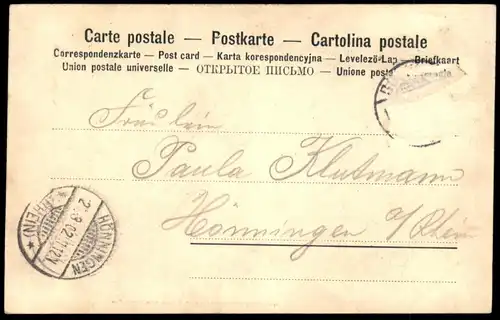 Carte postale — Postkarte — Cartolina postale
Correspondenzkarte — Post card — Karta korespondencyjna — Levelező-Lap — Briefkaart
Union postale universelle — ОТКРЫТОЕ ПИСЬМО — Unione posta
Fräulein
Paula Klutmann
Hönningen a/Rhein
HÖNNINGEN
(RHEIN)